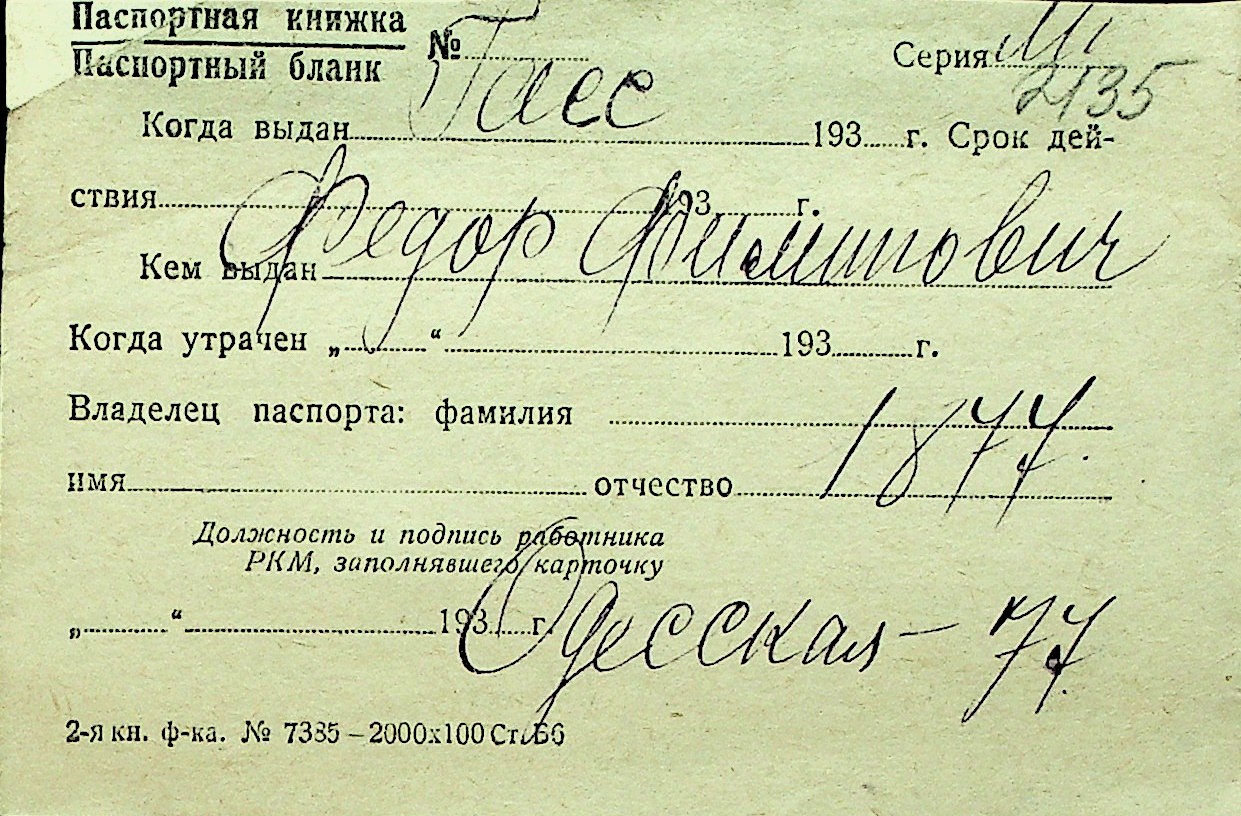 Паспортная книжка
Паспортный бланк № Гасс Серия
2135
Когда выдан 193 г. Срок дей-
ствия 193 г.
Федор Филиппович
Кем выдан
Когда утрачен „ “ 193 г.
Владелец паспорта: фамилия
1877.
имя отчество
Должность и подпись работника
РКМ, заполнявшего карточку
„ “ 193 г.
Одесская – 77.
2-я кн. ф-ка. № 7385 – 2000х100 Ст. Б6